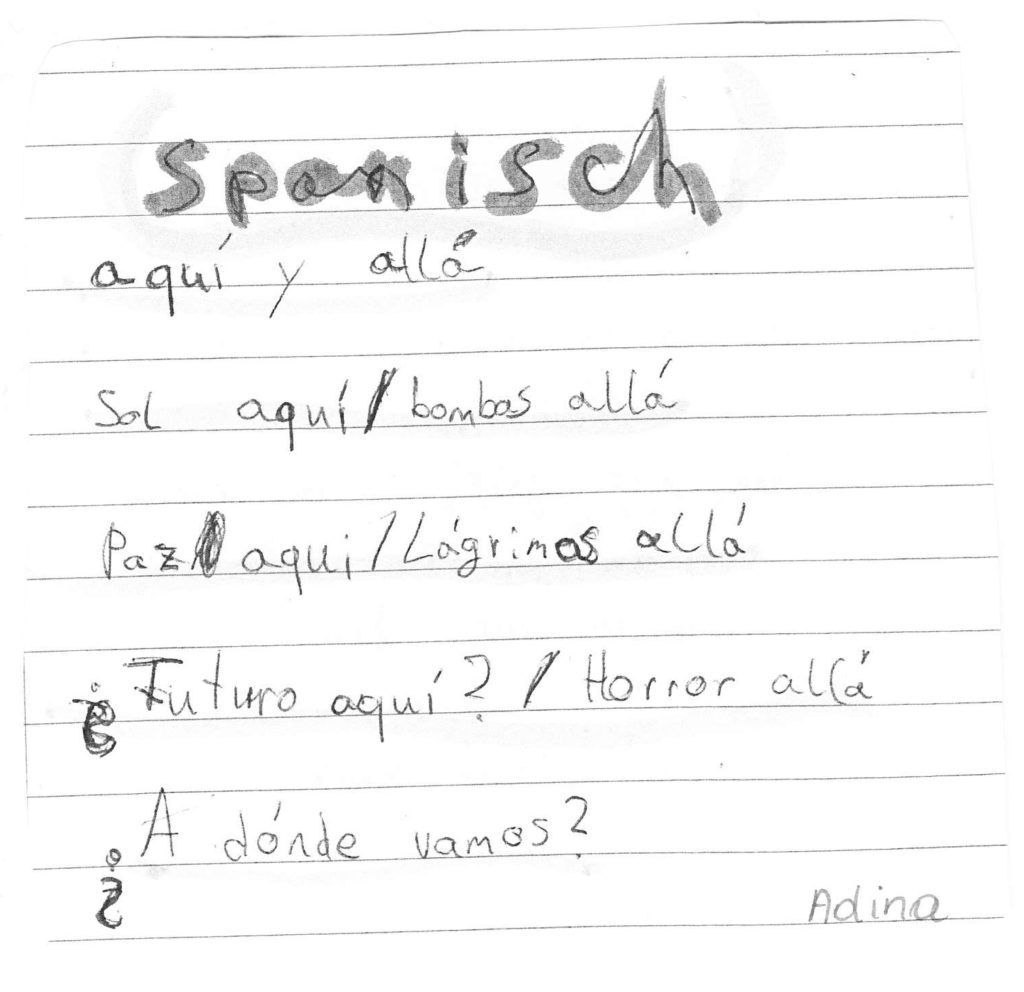 Spanisch
aquí y allá
Sol aquí / bombas allá
Paz aqui / Lágrimas allá
¿Futuro aquí? / Horror allá
¿A dónde vamos?
Adina